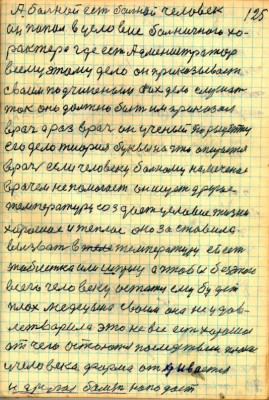 125
А больной есть больной человек
он попал в целовие больничного ха-
рактера где есть Администратор
всему этому дело он приказывает
своим подчиненым их дело слушат
так оно должно быть им приказал
врач а раз врач он ученый по рецепту
его дело теория буквы на это опирается
врач если человеку больному назначения
врачем не помогает он ищет другое
температуру создает условие жизни
хорошое и теплое оно заставила
вызват в температуру ей есть
таблетка или шприц а чтобы без этого
всего человеку остатки ему будет
плох медецына своим она не удов-
летварила это не все есть хорошо
от чего остаются последствии плохие
у человека форма открывается
и другая болезн нападает